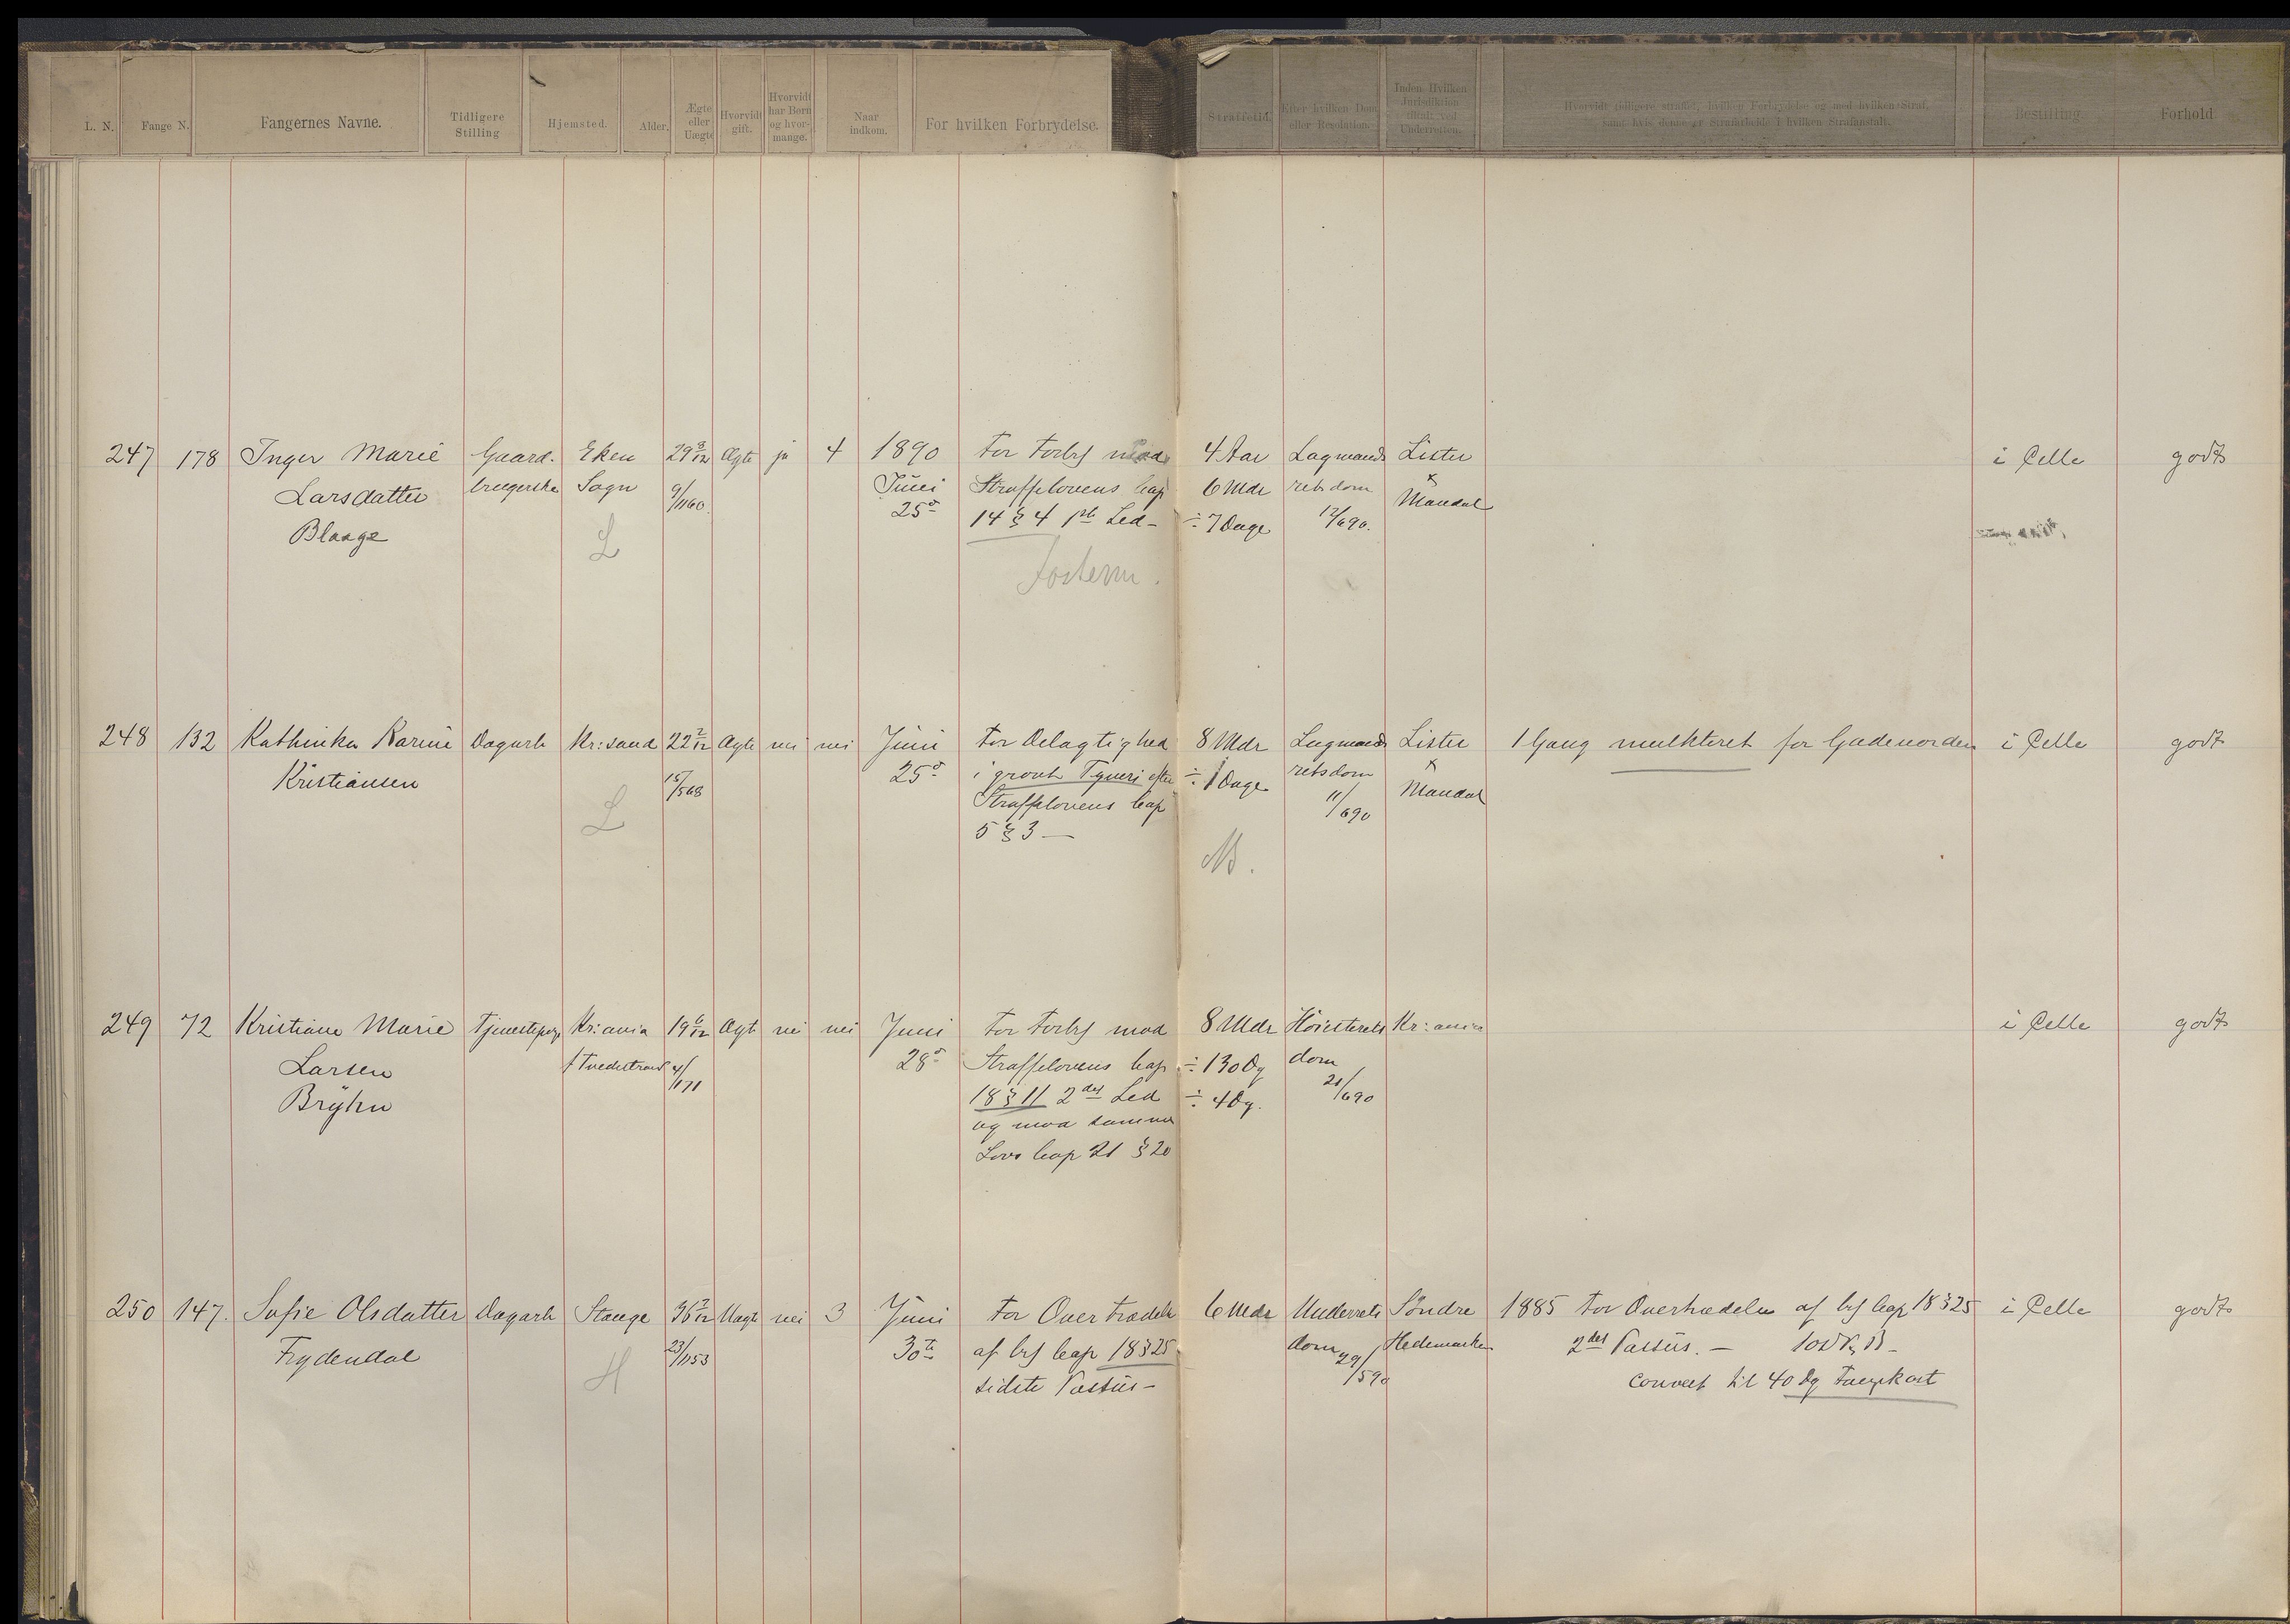 L. N.
Fange N.
Fangernes Navne.
Tidligere
Stilling
Hjemsted.
Alder.
Ægte
eller
Uægte
Hvorvidt
gift.
Hvorvidt
har Børn
og hvor-
mange.
Naar
indkom.
For hvilken Forbrydelse.
Straffetid.
Efter hvilken Dom
eller Resolution.
Inden Hvilken
Jurisdiktion
dömt ved
Underretten.
Hvorvidt tidligere straffet, hvilken Forbrydelse og med hvilken Straf,
samt hvis denne er Strafarbeide i hvilken Strafanstalt.
Bestilling
Forhold
247 178 Inger Marie Gaard- Eken 29 8/12 Ægte ja 4 1890 For Forbr mod 4 Aar Lagmands Lister i Celle godt
Larsdatter brugerske Sogn 9/1160. Juni Straffelovens Cap 6 Mdr retsdom &
Blaage 25de 14 § 4 1ste Led - ÷ 7 Dage 12/690. Mandal
L
Fosterm.
248 132 Kathinka Karine Dagarb Kr:sand 22 2/12 Ægte nei nei Juni For Delagtighed 8 Mdr Lagmands Lister 1 Gang mulkteret for Gadeuorden i Celle godt
Kristiansen 15/568 25de i grovt Tyveri efter ÷ 1 Dage retsdom &
L Straffelovens Cap 11/690 Mandal
5 § 3 —
M.
249 72 Kristiane Marie Tjenestepige Kr:ania 19 6/12 Ægt nei nei Juni For Forbr mod 8 Mdr Høiesterets Kr:ania i Celle godt
Larsen f Tvedestrand 4/171 28de Straffelovens Cap ÷ 130 Dg dom
Brÿhn 18 § 11 2det Led ÷ 4 Dg. 21/690
og mod samme
Lovs Cap 21 § 20
250 147. Sofie Olsdatter Dagarb Stange 36 7/12 Uægte nei 3 Juni For Overtrædelse 6 Mdr Underrets Söndre 1885 for Overtrædelse af Crl Cap 18 § 25 i Celle godt
Frydendal 23/1153 30te af Crl Cap 18 § 25 dom 29/590 Hedemarken 2det Passus. —
H sidste Passus - convert til 40 Dg Fangekost